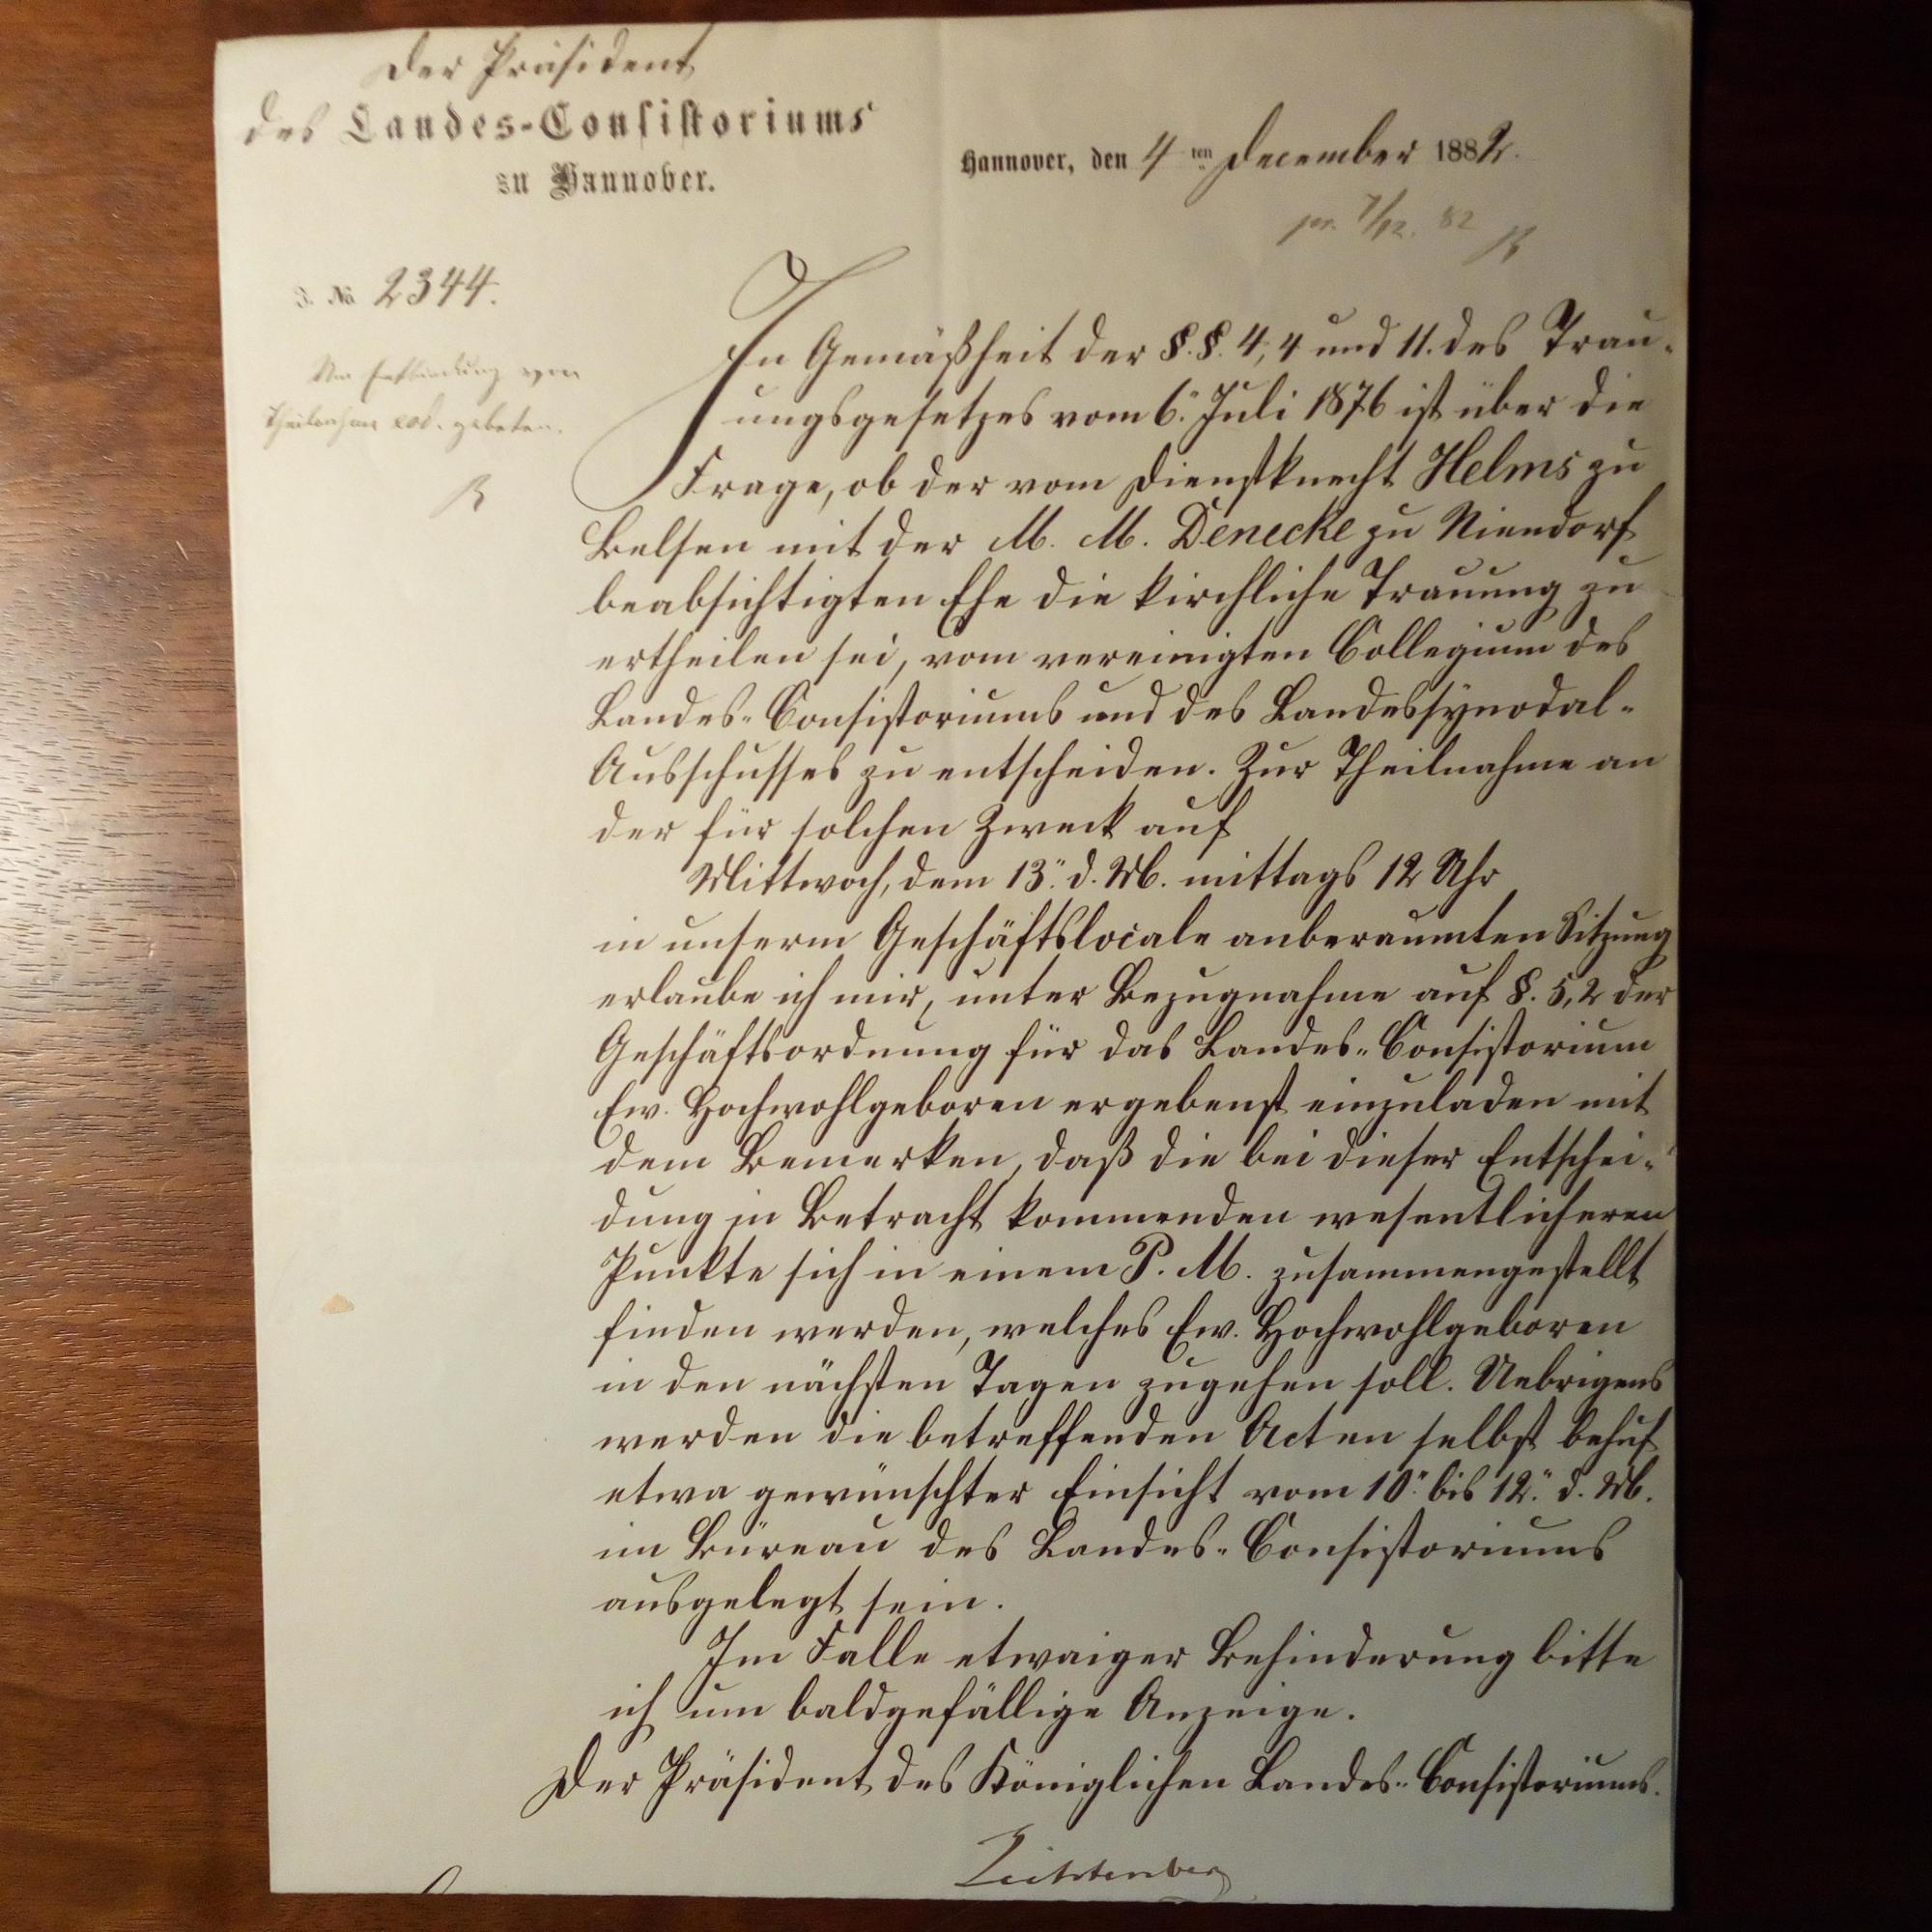 Der Präsident
des Landes-Consistoriums
zu Hannover.
Hannover, den 4ten December 1882.
pr. 7/12. 82
J. No 2344.
Um Entbindung von
Theilnahme eod. gebeten.
In Gemäßheit der §.§. 4, 4 und 11. des Trau-
ungsgesetzes vom 6. Juli 1876 ist über die
Frage, ob der vom Dienstknecht Helms zu
Belsen mit der M. M. Denecke zu Niendorf
beabsichtigten Ehe die kirchliche Trauung zu
ertheilen sei, vom vereinigten Collegium des
Landes-Consistoriums und des Landessynodal-
Ausschusses zu entscheiden. Zur Theilnahme an
der für solchen Zweck auf
Mittwoch, dem 13. d. M. mittags 12 Uhr
in unserm Geschäftslocale anberaumten Sitzung
erlaube ich mir, unter Bezugnahme auf §. 5, 2 der
Geschäftsordnung für das Landes-Consistorium
Ew. Hochwohlgeboren ergebenst einzuladen mit
dem Bemerken, daß die bei dieser Entschei-
dung in Betracht kommenden wesentlicheren
Punkte sich in einem P. M. zusammengestellt
finden werden, welches Ew. Hochwohlgeboren
in den nächsten Tagen zugehen soll. Uebrigens
werden die betreffenden Acten selbst behuf
etwa gewünschter Einsicht vom 10. bis 12. d. M.
im Büreau des Landes-Consistoriums
ausgelegt sein.
Im Falle etwaiger Behinderung bitte
ich um baldgefällige Anzeige.
Der Präsident des Königlichen Landes-Consistoriums.
Lichtenberg